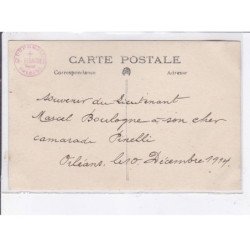 CARTE POSTALE
Correspondance Adresse
Souvenir du Lieutenant
Marcel Boulogne a son cher
camarade Pinelli
Orléans, le 10 Décembre 1914